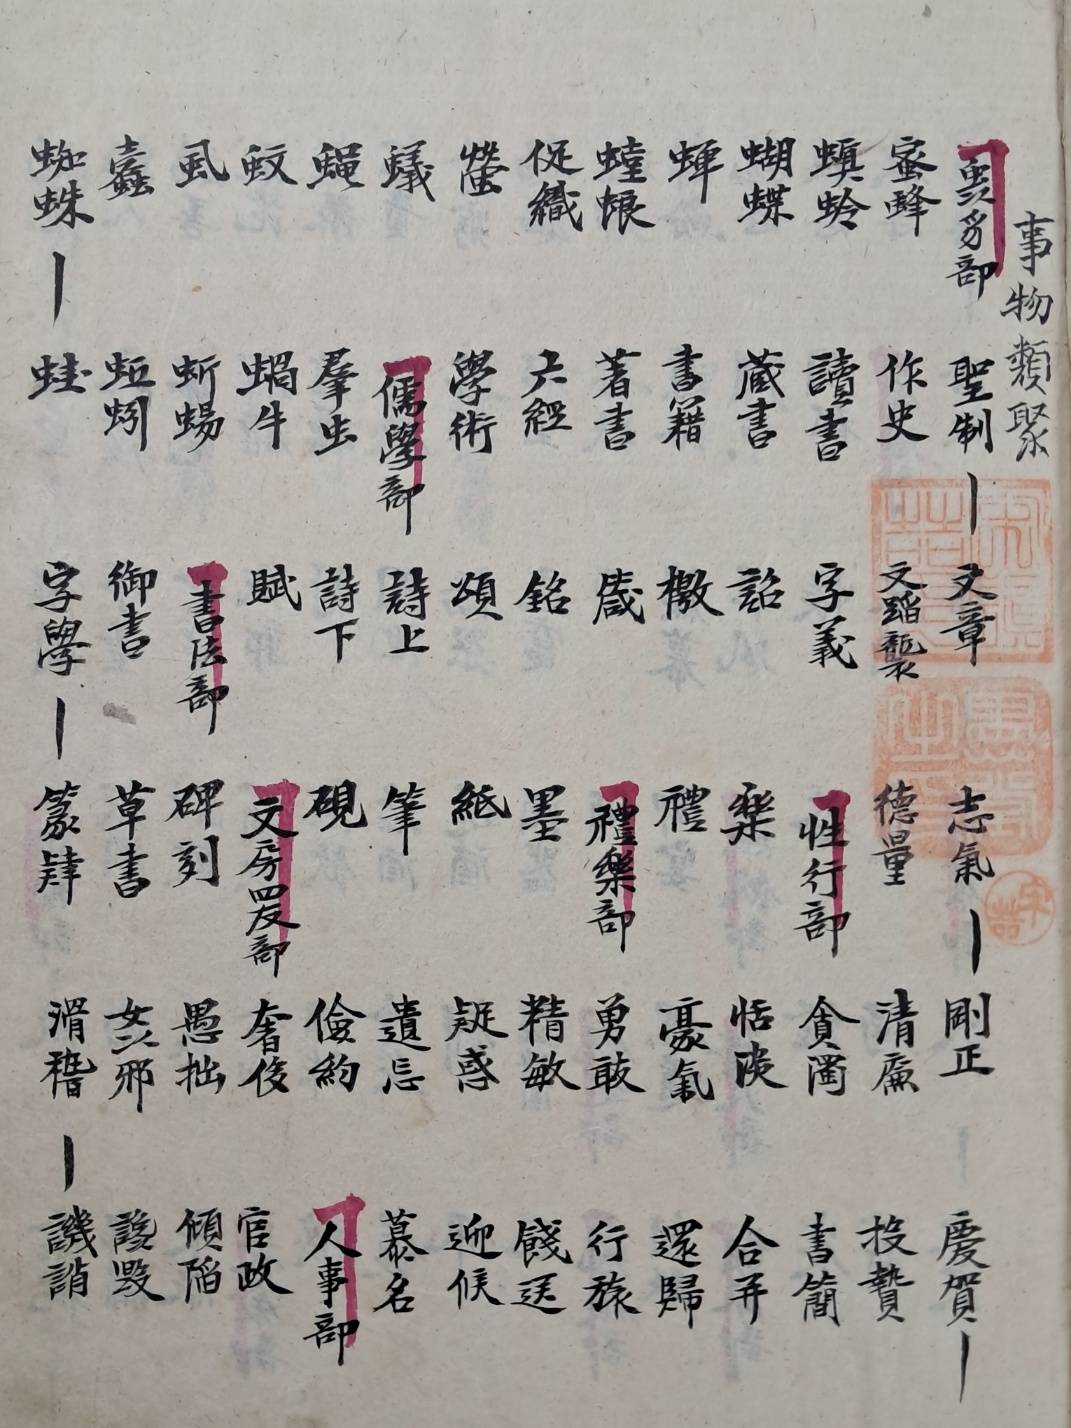 事物類聚
蟲豸部
蜜蜂
螟蛉
蝴蝶
蟬
螳蜋
促織
螢
蟻
蠅
蚊
虱
蠹
蜘蛛
蛙
蚯蚓
蜥蜴
蝸牛
羣虫
儒學部
學術
六經
著書
書籍
蔵書
讀書
作史
聖制
文章
文蹈襲
字義
詔
檄
箴
銘
頌
詩上
詩下
賦
書法部
御書
字學
篆肄
草書
碑刻
文房四友部
硯
筆
紙
墨
禮樂部
禮
樂
性行部
德量
志氣
剛正
清廉
貪濁
恬淡
豪氣
勇敢
精敏
疑惑
遺忘
儉約
奢侈
愚拙
姦邪
滑稽
譏誚
讒毀
傾陷
官政
人事部
慕名
迎候
餞送
行旅
還歸
合并
書簡
投贄
慶賀